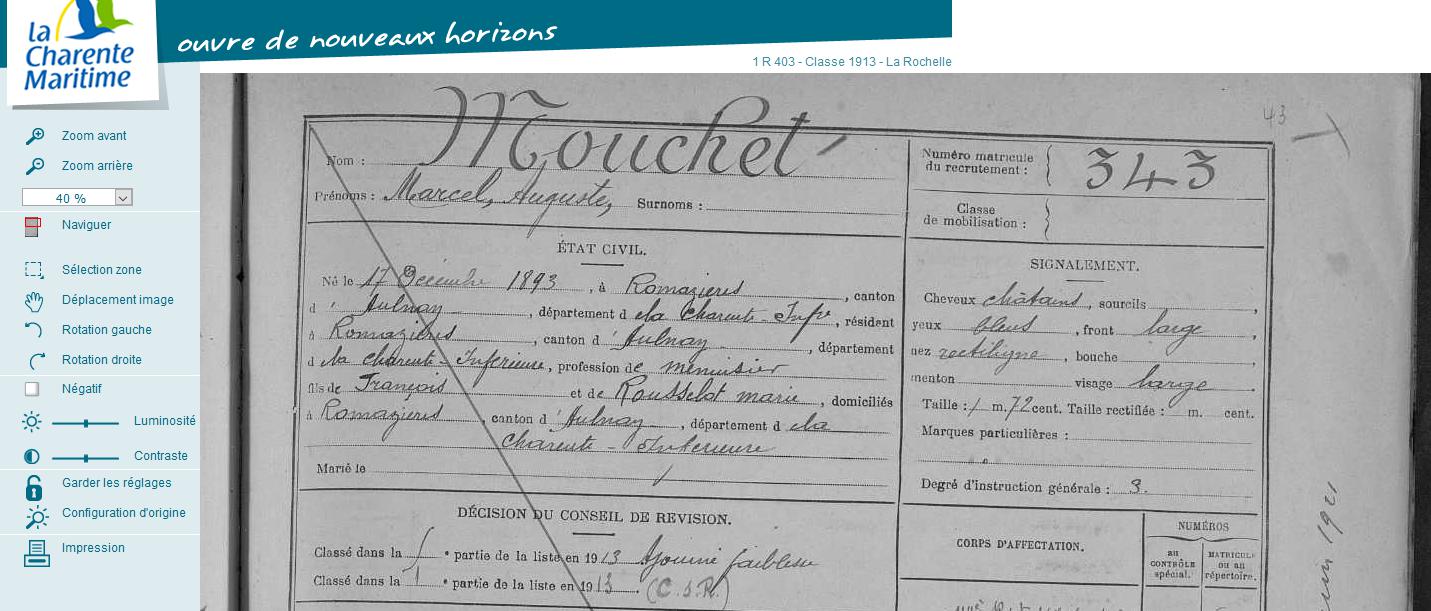 la
Charente
Maritime
ouvre de nouveaux horizons
1 R 403 - Classe 1913 - La Rochelle
Zoom avant
Zoom arrière
40 %
Naviguer
Sélection zone
Déplacement image
Rotation gauche
Rotation droite
Négatif
Luminosité
Contraste
Garder les réglages
Configuration d'origine
Impression
43
Nom : Mouchet
Prénoms : Marcel, Auguste, Surnoms :
Numéro matricule
du recrutement : 343
Classe
de mobilisation :
ÉTAT CIVIL.
Né le 17 Décembre 1893, à Romazières, canton
d' Aulnay, département d e la Charente-Infre, résident
à Romazières, canton d' Aulnay, département
d e la Charente-Inférieure, profession de menuisier
fils de François et de Rousselot marie, domiciliés
à Romazières, canton d' Aulnay, département d e la
Charente-Inférieure
Marié le
SIGNALEMENT.
Cheveux châtains, sourcils
yeux bleus, front large
nez rectiligne, bouche
menton visage large
Taille : 1 m. 72 cent. Taille rectifiée : m. cent.
Marques particulières :
Degré d'instruction générale : 3.
DÉCISION DU CONSEIL DE REVISION.
Classé dans la partie de la liste en 1913 Ajourné faiblesse
Classé dans la 1 partie de la liste en 1913 (C.S.R.)
CORPS D'AFFECTATION.
NUMÉROS
au
CONTRÔLE
spécial.
MATRICULE
ou au
répertoire.
1921